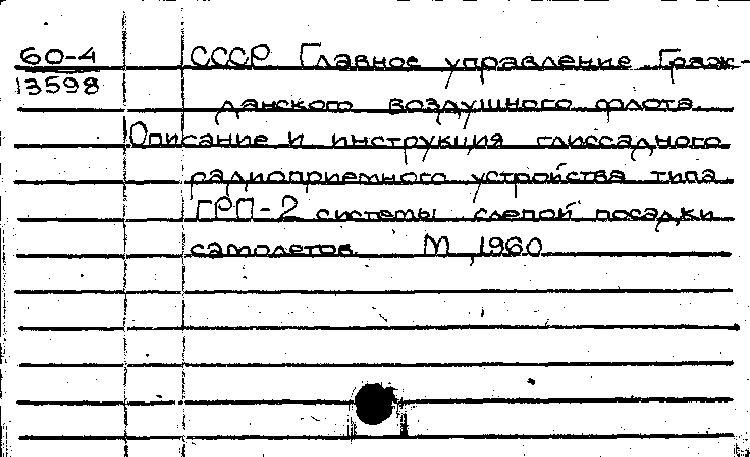 60-4 СССР Главное управление Граж-
13598
данского воздушного флота.
Описание и инструкция глиссадного
радиоприемного устройства типа
ГРП-2 системы слепой посадки
самолетов. М, 1960